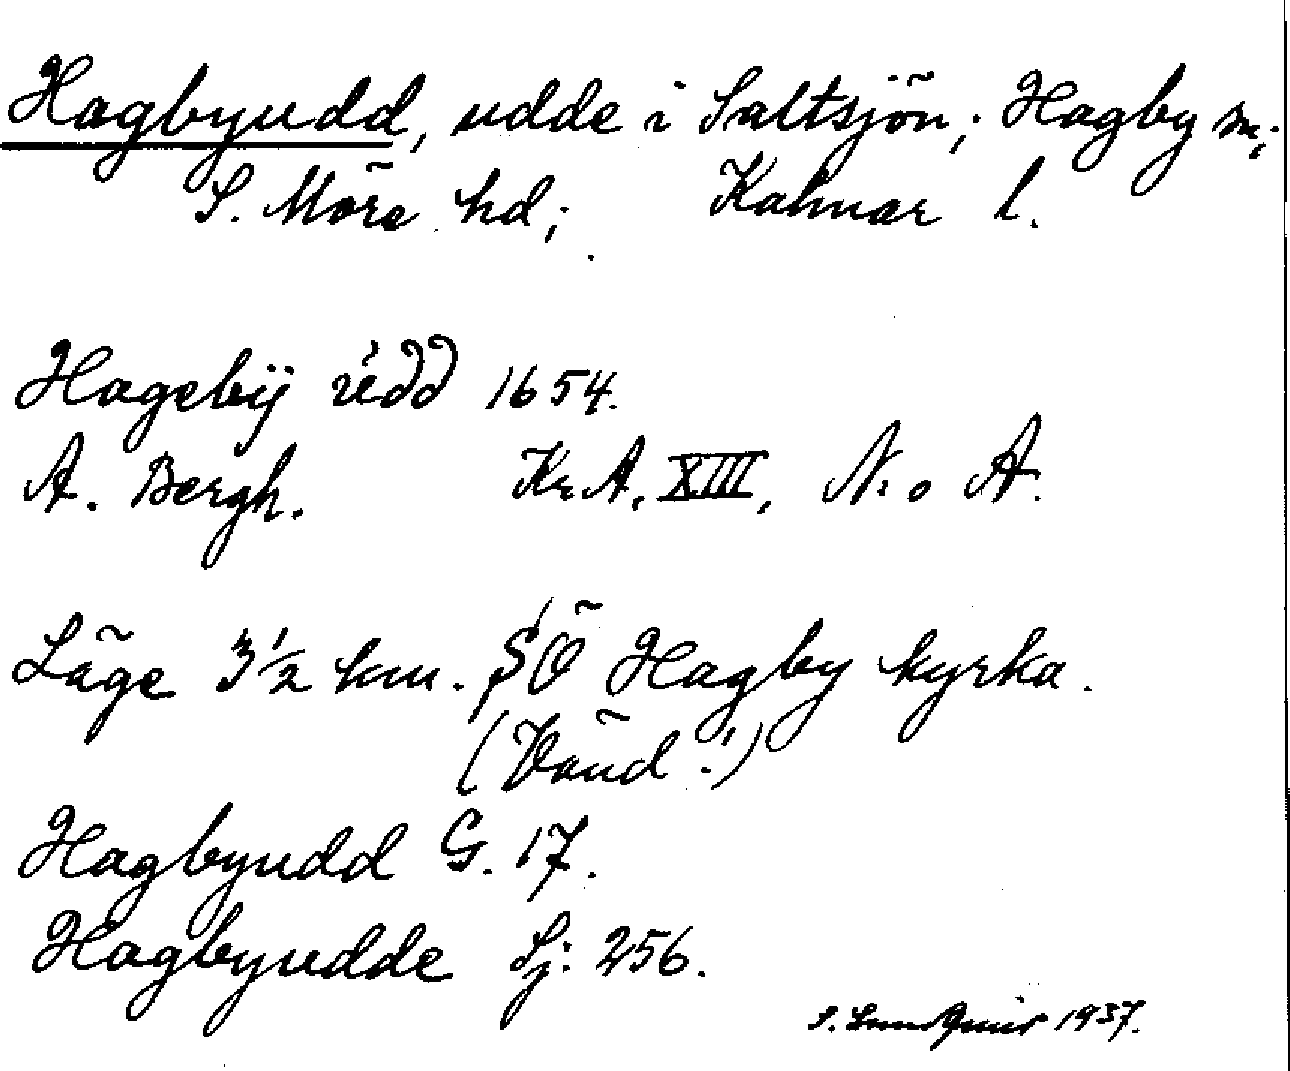 Hagbyudd, udde i Saltsjön; Hagby sn;
S. Möre hd; Kalmar l.
Hagebÿ údd 1654.
A. Bergh. Kr.A. XIII, N:o A.
Läge 3 1/2 km. SÖ Hagby kyrka.
(Vänd!)
Hagbyudd G. 17.
Hagbyudde Sj: 256.
S. Lundquist 1937.